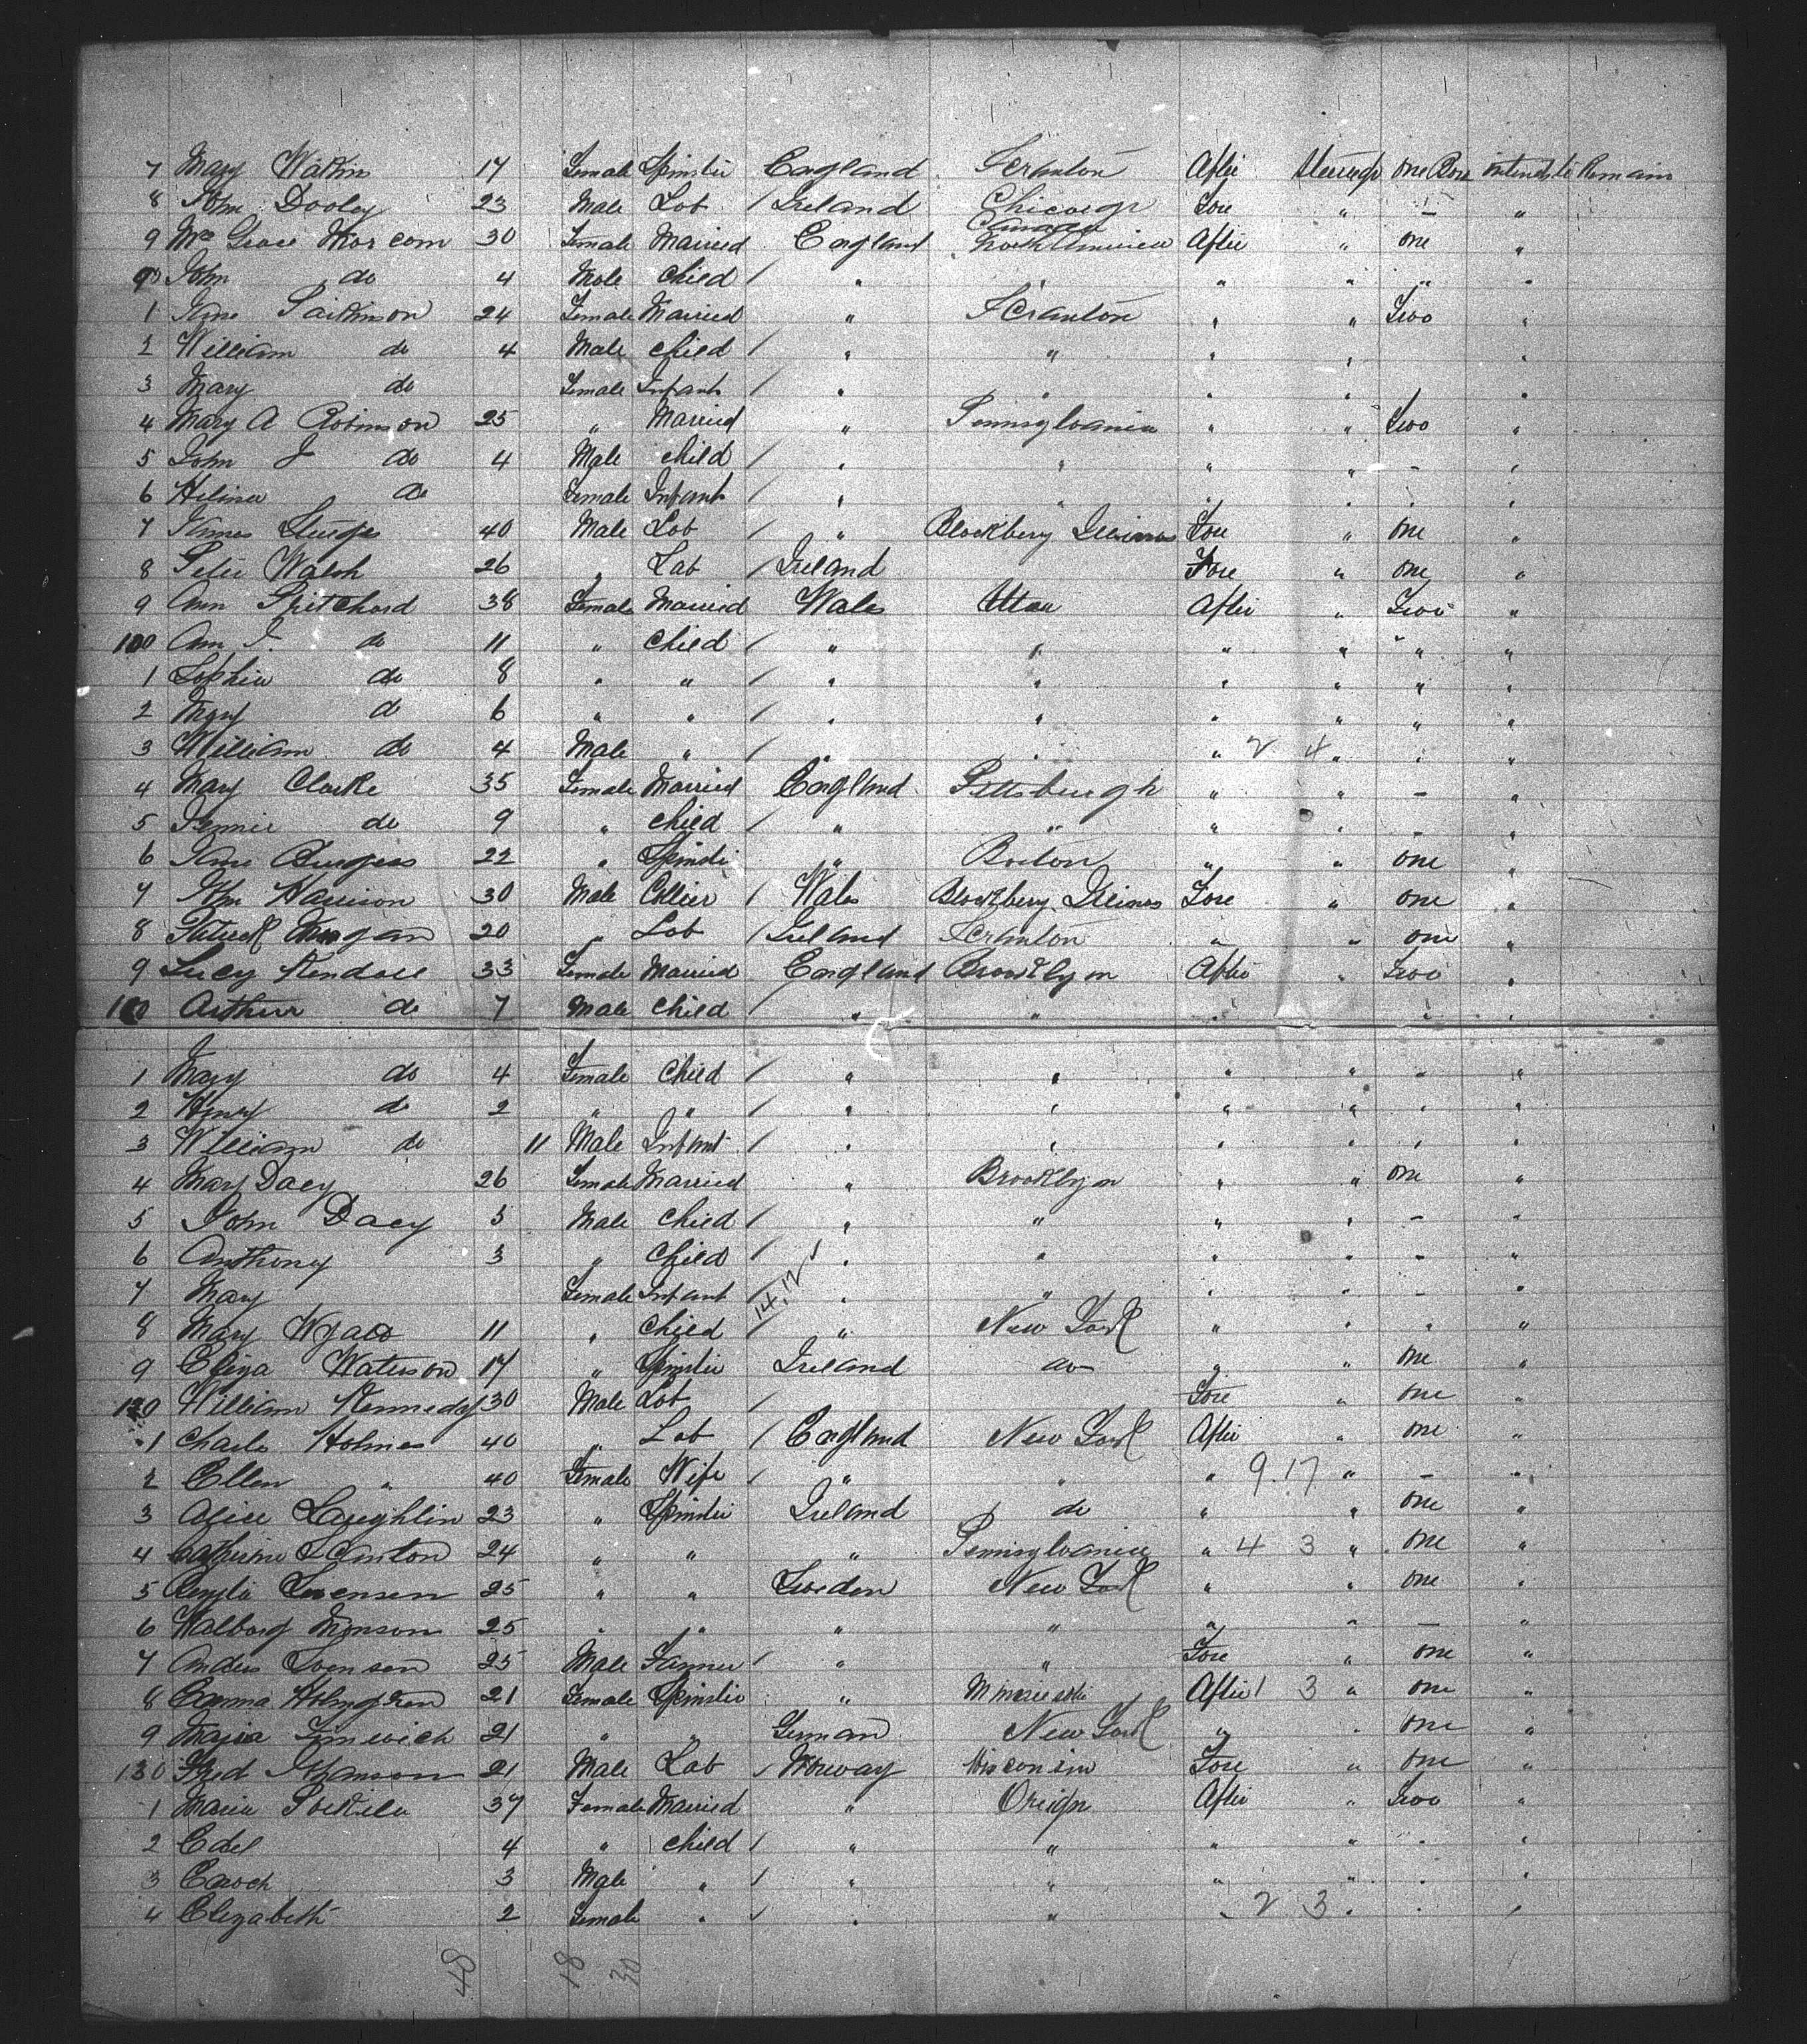 7 Mary Watkins 17 Female Spinster England Scranton After Steerage one Box intends to Remain
8 John Dooley 23 Male Lab / Ireland Chicago Fore " - "
9 Mrs Grace Morcom 30 Female Married England North America After " one "
90 John do 4 Male Child / " " " " "
1 Jane Parkinson 24 Female Married " Scranton " " Two "
2 William do 4 Male Child / " " " " "
3 Mary do Female Infant / " " " " "
4 Mary A Robinson 25 " Married " Pennsylvania " " Two "
5 John J do 4 Male Child / " " " " - "
6 do Female Infant / " " " " "
7 James 40 Male Lab / " Blockbery Fore " one "
8 Peter Walsh 26 " Lab / Ireland Fore " one "
9 Ann Pritchard 38 Female Married Wales Utau After " Two "
100 Ann J. do 11 " Child / " " " " " "
1 Sophia do 8 " " / " " " " " "
2 Mary do 6 " " / " " " " " "
3 William do 4 Male " / " " " 2 4 " " "
4 Mary Clarke 35 Female Married England Pittsburgh " " - "
5 Jennie do 9 " Child / " " " " - "
6 Jane Burgess 22 " Spinster " Boston " " one "
7 Jhn Harrison 30 Male Collier / Wales Blockbery Fore " one "
8 Patrick 20 " Lab / Ireland Scranton " " one "
9 Lucy Kendall 33 Female Married England Brooklyn After " Two "
110 Arthur do 7 Male Child / " " " " "
1 Mary do 4 Female Child / " " " " - "
2 Henry do 2 " " / " " " " " "
3 William do 11 Male Infant / " " " " " "
4 Mary Dacy 26 Female Married " Brooklyn " " one "
5 John Dacy 5 Male Child / " " " " - "
6 Anthony 3 " Child / " " " " - "
7 Mary Female Infant / 14.12 " " " " - "
8 Mary 11 " Child / " New York " " " "
9 Eliza Waterson 17 " Spinster Ireland do " " one "
120 William Kennedy 30 Male Lab / Fore " one "
1 Charls Holmes 40 " Lab / England New York After " one "
2 Ellen " 40 Female Wife / " " " 9.17 " - "
3 Alice Laughlin 23 " Spinster Ireland do " " one "
4 Catherine Scanton 24 " " " Pennsylvania " 4 3 " one "
5 Svensen 25 " " Sweden New York " " one "
6 Walborg Monson 25 " " " " " " - "
7 Anders Svensen 25 Male Farmer / " " Fore " one "
8 Emma Holmgren 21 Female Spinster " After 1 3 " one "
9 21 " " German New York " " one "
130 Fred Johanson 21 Male Lab / Norway Wisconsin Fore " one "
1 Maria 37 Female Married " Oreign After " Two "
2 Edel 4 " Child / " " " " " "
3 Enoch 3 Male " / " " " " " "
4 Elizabeth 2 Female " / " " " 2 3 " " "
48 18 30